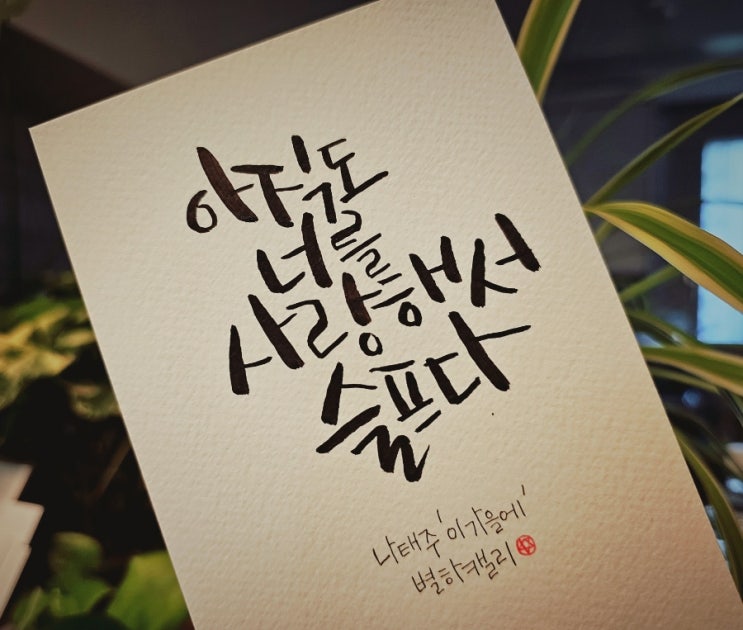 아직도
너를
사랑해서
슬프다
나태주 '이 가을에'
별하캘리